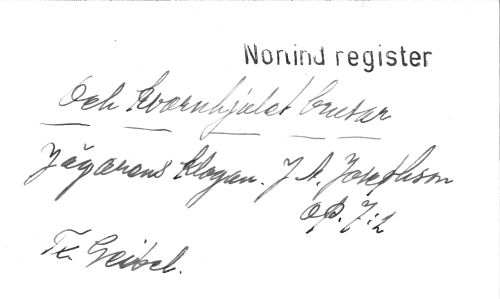 Norlind register
Och kvarnhjulet brusar
Jägarens klagan. J A. Josephson
op. 7:2
Th. Geibel.